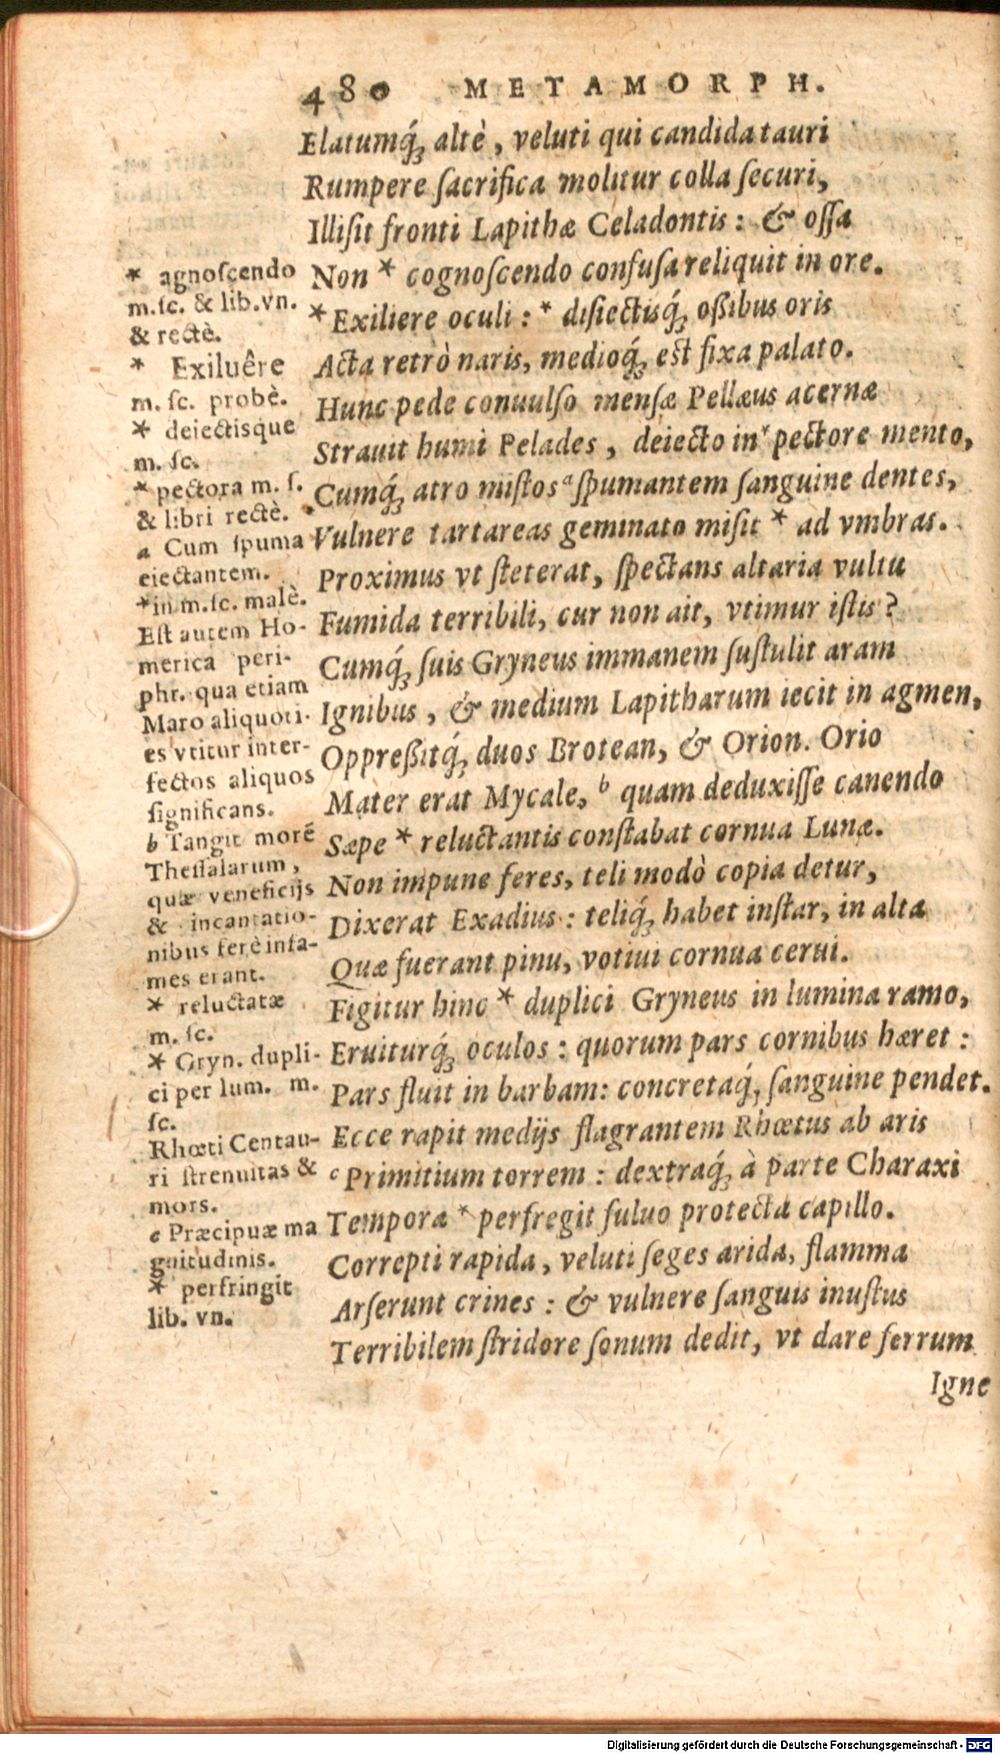 480 METAMORPH.
Elatumq́; altè, veluti qui candida tauri
Rumpere ſacrifica molitur colla ſecuri,
Illiſit fronti Lapithæ Celadontis: & oſſa
Non * cognoſcendo confuſa reliquit in ore.
* Exiliere oculi: * diſiectisq́; oßibus oris
Acta retrò naris, medioq́; eſt fixa palato.
Hunc pede conuulſo menſæ Pellæus acernæ
Strauit humi Pelades, deiecto in * pectore mento,
Cumq́; atro miſtos a ſpumantem ſanguine dentes,
Vulnere tartareas geminato miſit * ad vmbras.
Proximus vt ſteterat, ſpectans altaria vultu
Fumida terribili, cur non ait, vtimur iſtis?
Cumq́; ſuis Gryneus immanem ſuſtulit aram
Ignibus, & medium Lapitharum iecit in agmen,
Oppreßitq́; duos Brotean, & Orion. Orio
Mater erat Mycale, b quam deduxiſſe canendo
Sæpe * reluctantis conſtabat cornua Lunæ.
Non impune feres, teli modò copia detur,
Dixerat Exadius: teliq́; habet inſtar, in alta
Quæ fuerant pinu, votiui cornua cerui.
Figitur hinc * duplici Gryneus in lumina ramo,
Eruiturq́; oculos: quorum pars cornibus hæret:
Pars fluit in barbam: concretaq́; ſanguine pendet.
Ecce rapit medijs flagrantem Rhœtus ab aris
c Primitium torrem: dextraq́; à parte Charaxi
Tempora * perfregit fuluo protecta capillo.
Correpti rapida, veluti ſeges arida, flamma
Arſerunt crines: & vulnere ſanguis inuſtus
Terribilem ſtridore ſonum dedit, vt dare ferrum
Igne
* agnoſcendo
m.ſc. & lib.vn.
& rectè.
* Exiluêre
m. ſc. probè.
* deiectisque
m. ſc.
* pectora m. ſ.
& libri rectè.
a Cum ſpuma
eiectantem.
* in m.ſc. malè.
Eſt autem Ho-
merica peri-
phr. qua etiam
Maro aliquoti-
es vtitur inter-
fectos aliquos
ſignificans.
b Tangit morē
Theſſalarum,
quæ veneficijs
& incantatio-
nibus ferè infa-
mes erant.
* reluctatæ
m. ſc.
* Gryn. dupli-
ci per lum. m.
ſc.
Rhœti Centau-
ri ſtrenuitas &
mors.
c Præcipuæ ma
gnitudinis.
* perfringit
lib. vn.
Digitalisierung gefördert durch die Deutsche Forschungsgemeinschaft - DFG